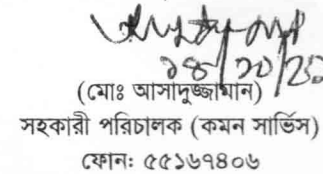 ১৪/১০/২৫
(মোঃ আসাদুজ্জামান)
সহকারী পরিচালক (কমন সার্ভিস)
ফোন: ৫৫১৬৭৪০৬